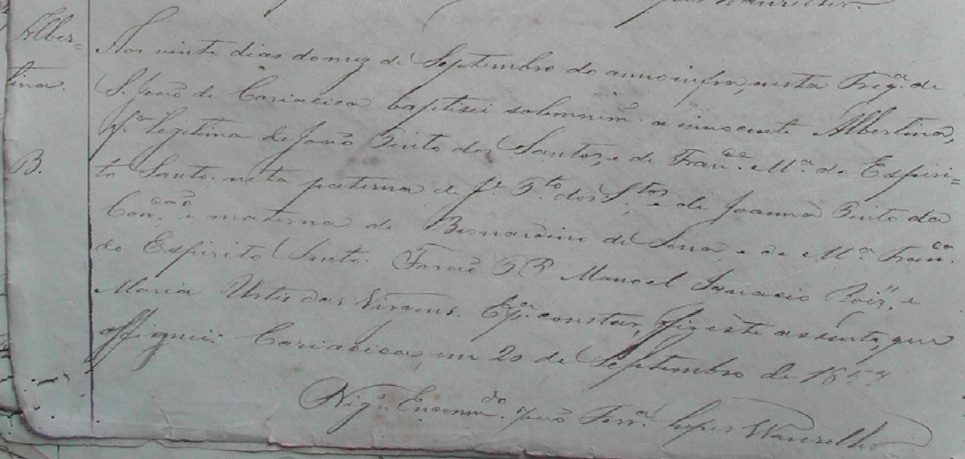 Wanzelho.
Alber=
tina.
B.
Aos vinte dias do mez de Septembro do anno infra, nesta Freg.ª de
S. João de Cariacica baptisei solemnem.e a innocente Albertina,
f.ª legitima de João Pinto dos Santos, e de Fran.ca M.ª do Espiri=
to Santo: neta paterna de J.e P.to dos S.tos e de Joanna Pinto da
Con.cão e materna de Bernardino de Sena, e de M.ª Fran.ca
do Espirito Santo. Forão PP. Manoel Ignacio e
Maria das Virgens. E p.ª constar, fiz este assento, que
assignei. Cariacica, em 20 de Septembro de
Vig.º Encomm.do João Ferr.ª Lopes Wanzelho